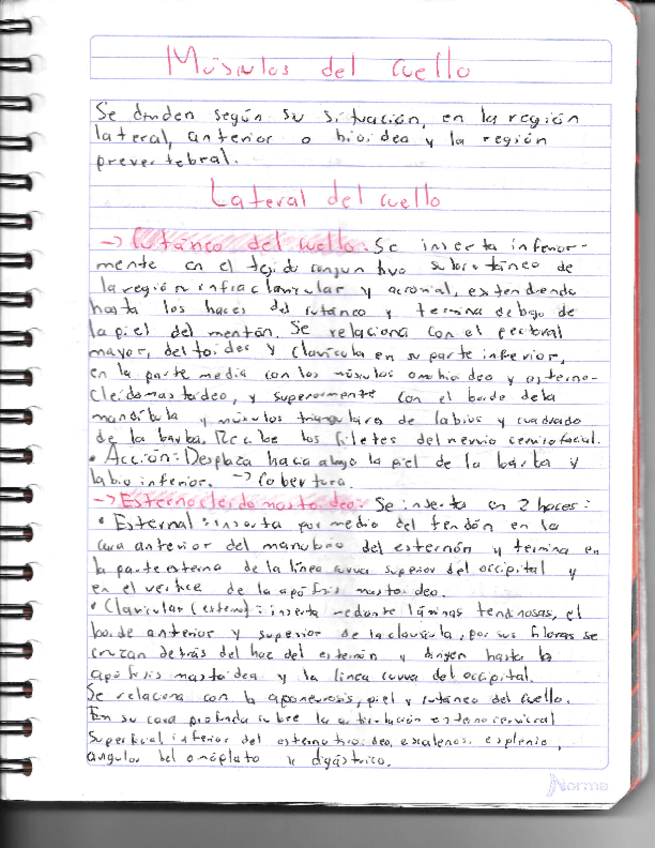 Músculos del cuello
Se dividen según su situación, en la región
lateral, anterior o hioidea y la región
prevertebral.
Lateral del cuello
→ Cutáneo del cuello: Se inserta inferior-
mente en el tejido conjuntivo subcutáneo de
la región infraclavicular y acromial, extendiendo
hasta los haces del cutáneo y termina debajo de
la piel del mentón. Se relaciona con el pectoral
mayor, deltoides y clavícula en su parte inferior,
en la parte media con los músculos omohioideo y esterno-
cleidomastoideo, y superiormente con el borde de la
mandíbula y músculos triangulares de labios y cuadrado
de la barba. Recibe los filetes del nervio cervicofacial.
• Acción: Desplaza hacia abajo la piel de la barba y
labio inferior. → Cobertura.
→ Esternocleidomastoideo: Se inserta en 2 haces:
• Esternal: inserta por medio del tendón en la
cara anterior del manubrio del esternón y termina en
la parte externa de la línea curva superior del occipital y
en el vértice de la apófisis mastoideo.
• Clavicular (externo): inserta mediante láminas tendinosas, el
borde anterior y superior de la clavícula, por sus fibras se
cruzan detrás del haz del esternón y dirigen hasta la
apófisis mastoidea y la línea curva del occipital.
Se relaciona con la aponeurosis, piel y cutáneo del cuello.
En su cara profunda cubre la articulación
superficial, inferior del esternotiroideo, escalenos, esplenio,
angular del omóplato y digástrico.
Norma